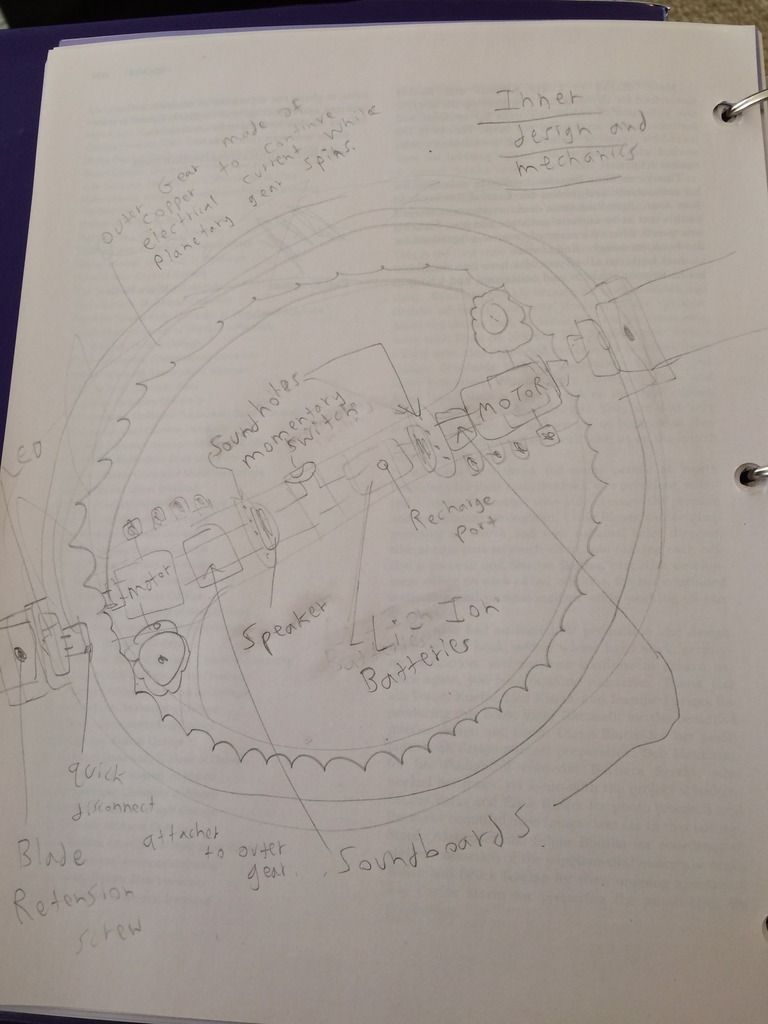 Inner
design and
mechanics
outer Gear made of
copper to continue
electrical current while
planetary gear spins.
LED
Soundholes
momentary
switch
MOTOR
Recharge
port
motor
Speaker
Li-Ion
Batteries
quick
disconnect
attacher
to outer
gear.
Soundboards
Blade
Retension
screw